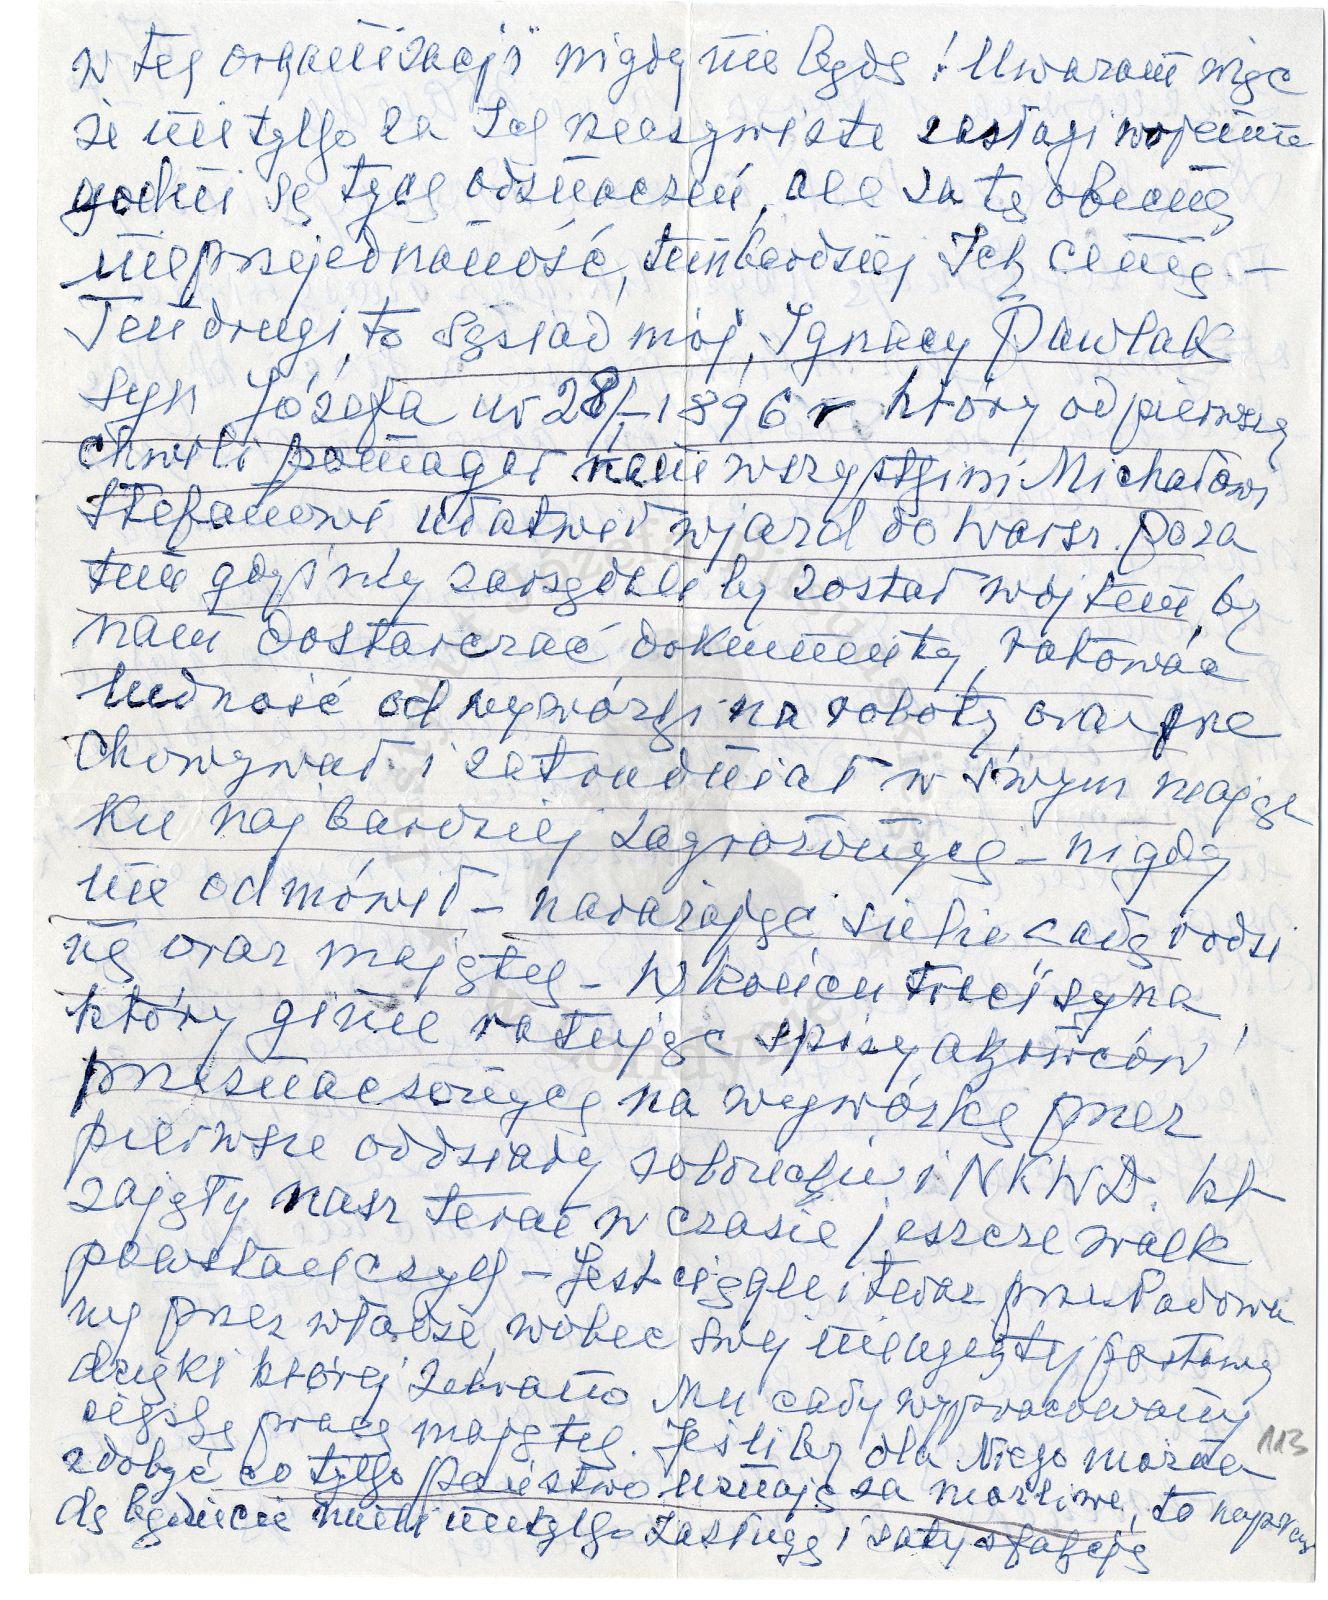 w tej organizacji nigdy nie będę! Uważam więc
że nie tylko za Ich rzeczywiste zasługi wojenne
godni są tych odznaczeń, ale za tę obecną
nieprzejednaność, tembardziej Ich cenię. –
Ten drugi, to sąsiad mój, Ignacy Pawlak
syn Józefa ur 28/ – 1896 r który od pierwszej
chwili pomagał nam wszystkim Michałowi
Stefanowi ułatwił wjazd do Warsz. poza
tem gdyśmy zarządzili by został wójtem, by
nam dostarczać dokumenty, ratować
ludność od wywózki na roboty, oraz prze
chowywał i zatrudniał w swym mająt
ku najbardziej zagrożonych – nigdy
nie odmówił – narażając siebie całą rodzi
nę oraz majątek – W końcu traci syna,
który ginie ratując spisyakowców
przeznaczonych na wywózkę przez
pierwsze oddziały sobieckie i NKWD. kt
zajęły nasz teren w czasie jeszcze walk
powstańczych – Jest ciągle i teraz prześladowa
ny przez władze, wobec swej nieugiętej postawy
dzięki której zabrano Mu cały wypracowany
ciężką pracą majątek. Jeśli by dla Niego można 113
zdobyć co tylko państwo uznają za możliwe, to napraw
dę będziecie mieli nie tylko zasługę i satysfakcję